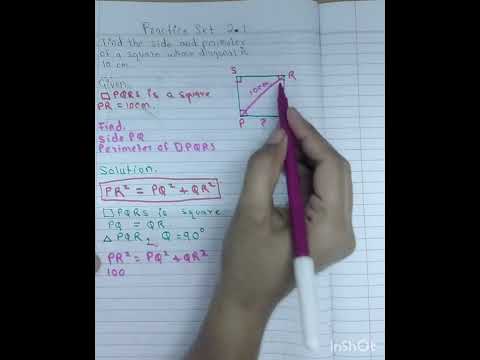 Practice Set 2.1
Find the side and perimeter
of a square whose diagonal is
10 cm.
Given.
□PQRS is a square
PR = 10cm.
Find.
side PQ
Perimeter of □PQRS
Solution.
PR² = PQ² + QR²
□PQRS is square
PQ = QR
△ PQR, Q = 90°
PR² = PQ² + QR²
100
S
R
10cm
P
?
InShOt